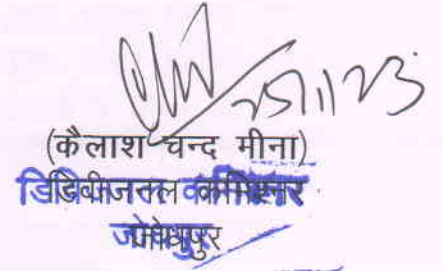 25/1/23
(कैलाश चन्द मीना)
डिविजनल कमिश्नर
जोधपुर